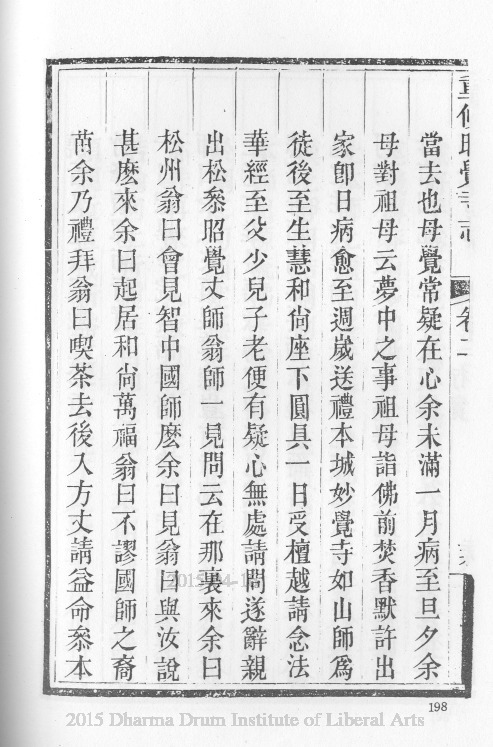 重修昭覺寺志 卷二
當去也母覺常疑在心余未滿一月病至旦夕余
母對祖母云夢中之事祖母詣佛前焚香默許出
家卽日病愈至週歲送禮本城妙覺寺如山師爲
徒後至生慧和尙座下圓具一日受檀越請念法
華經至父少兒子老便有疑心無處請問遂辭親
出松叅昭覺丈師翁師一見問云在那裏來余曰
松州翁曰會見智中國師麼余曰見翁曰與汝說
甚麼來余曰起居和尙萬福翁曰不謬國師之裔
苗余乃禮拜翁曰喫茶去後入方丈請益命叅本
198
2015 Dharma Drum Institute of Liberal Arts